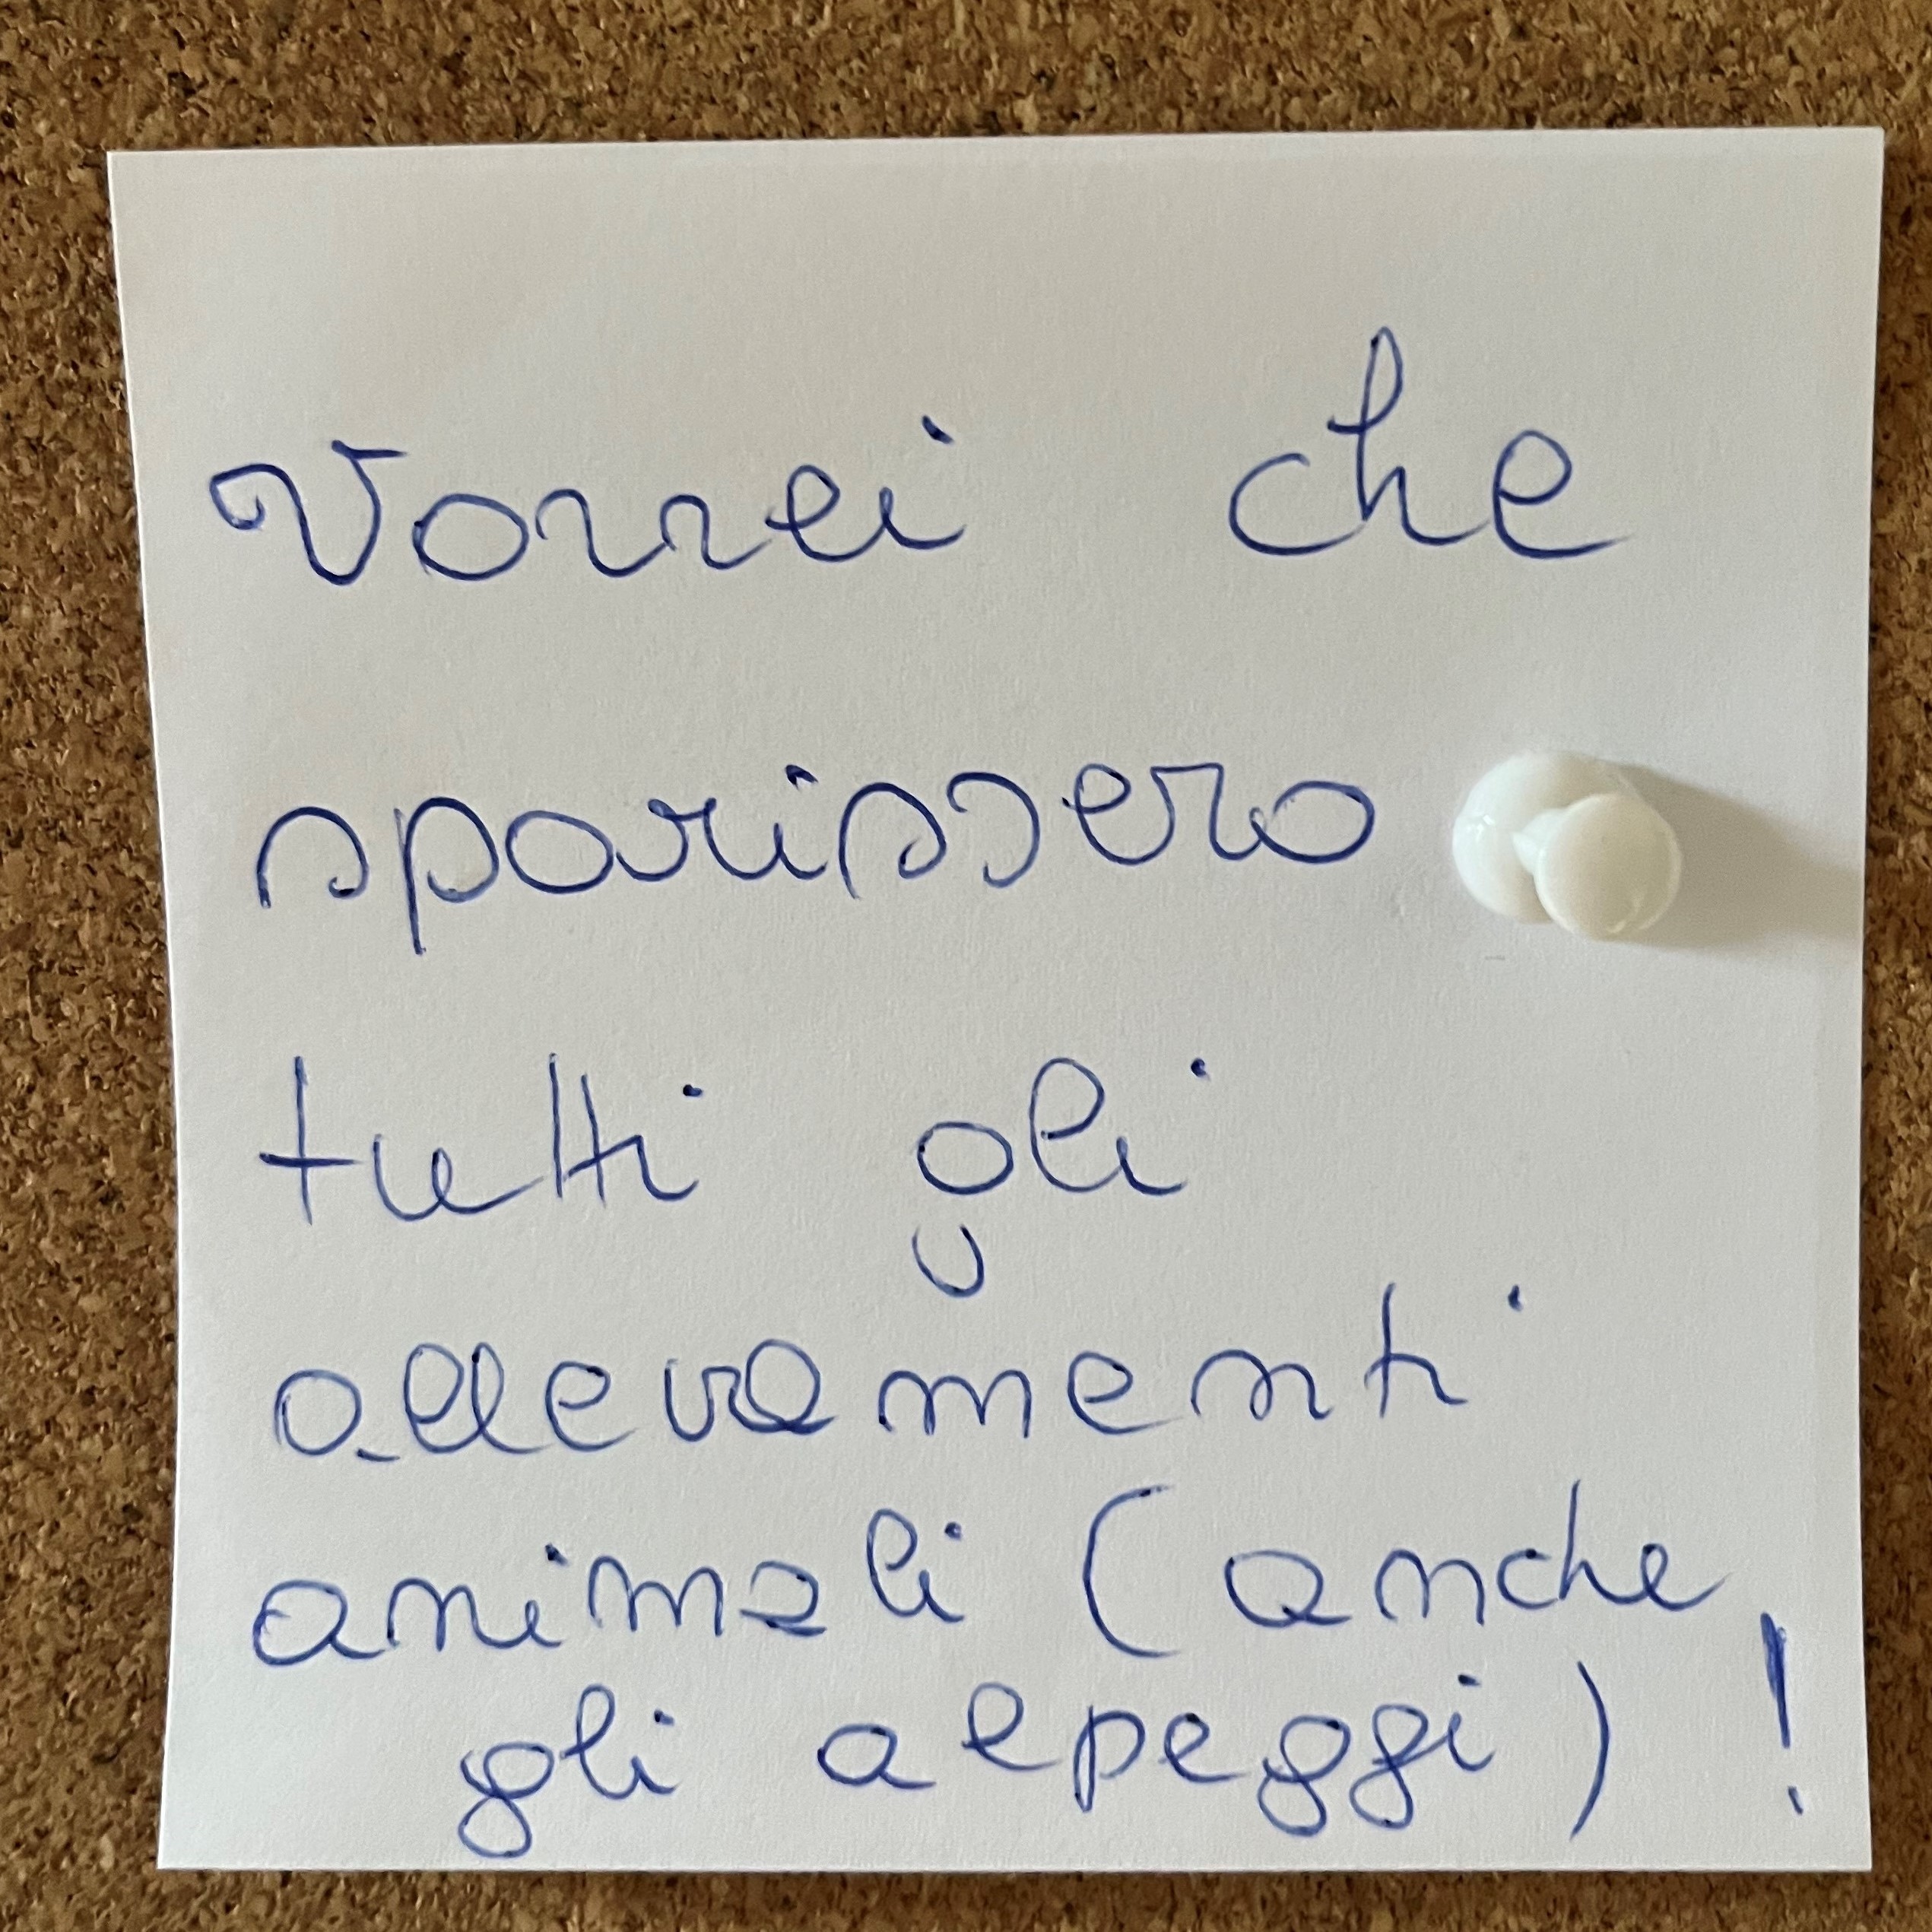 Vorrei che
sparissero
tutti gli
allevamenti
animali (anche
gli alpeggi)!